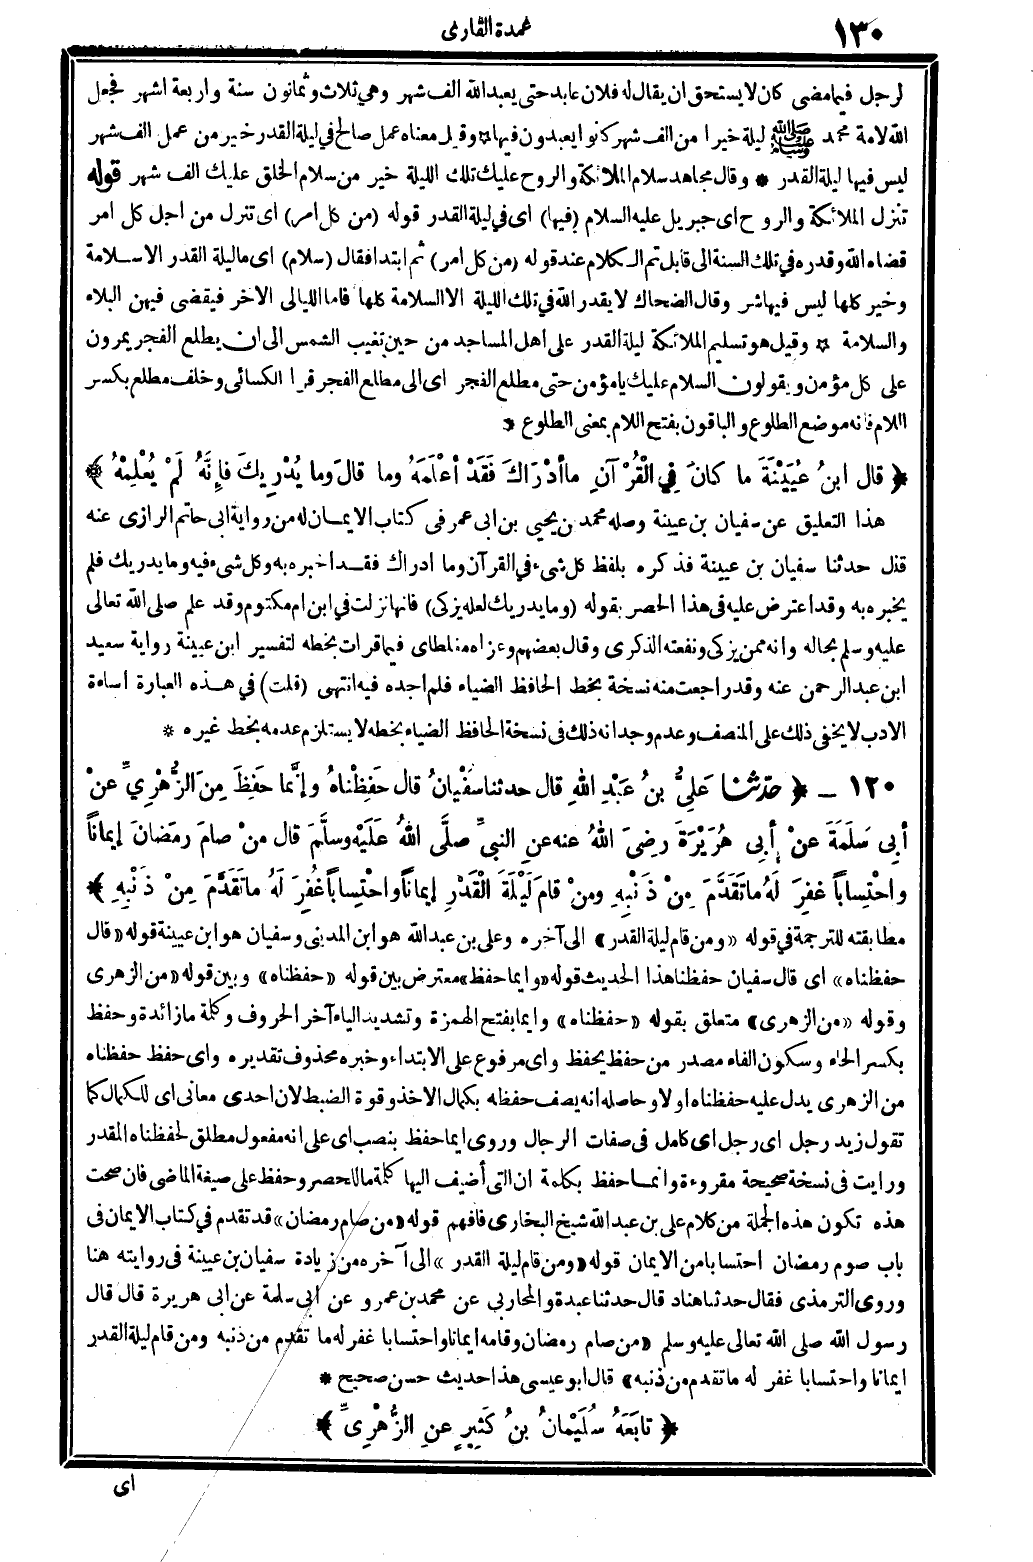 ١٣٠
عمدة القارى
لرجل فيما مضى كان لا يستحق ان يقال له فلان عابد حتى يعبد الله الف شهر وهي ثلاث وثمانون سنة واربعة اشهر فجعل
الله لامة محمد ﷺ ليلة خيرا من الف شهر كانوا يعبدون فيها * وقيل معناه عمل صالح في ليلة القدر خير من عمل الف شهر
ليس فيها ليلة القدر * وقال مجاهد سلام الملائكة والروح عليك تلك الليلة خير من سلام الخلق عليك الف شهر قوله
تنزل الملائكة والروح اى جبريل عليه السلام (فيها) اى في ليلة القدر قوله (من كل امر) اى تنزل من اجل كل امر
قضاه الله وقدره في تلك السنة الى قابل تم الكلام عند قوله (من كل امر) ثم ابتدا فقال (سلام) اى ما ليلة القدر الا سلامة
وخير كلها ليس فيها شر وقال الضحاك لا يقدر الله في تلك الليلة الا السلامة كلها فاما الليالى الاخر فيقضى فيهن البلاء
والسلامة * وقيل هو تسليم الملائكة ليلة القدر على اهل المساجد من حين تغيب الشمس الى ان يطلع الفجر يمرون
على كل مؤمن ويقولون السلام عليك يا مؤمن حتى مطلع الفجر اى الى مطلع الفجر قرا الكسائى وخلف مطلع بكسر
اللام فانه موضع الطلوع والباقون بفتح اللام بمعنى الطلوع *
﴿ قال ابنُ عُيَيْنَةَ ما كانَ في الْقُرْآنِ ما أدْرَاكَ فَقَدْ أعْلَمَهُ وما قالَ وما يُدْرِيكَ فإنَّهُ لَمْ يُعْلِمْهُ ﴾
هذا التعليق عن سفيان بن عيينة وصله محمد بن يحيى بن ابى عمر فى كتاب الايمان له من رواية ابى حاتم الرازى عنه
قال حدثنا سفيان بن عيينة فذكره بلفظ كل شىء في القرآن وما ادراك فقد اخبره به وكل شىء فيه وما يدريك فلم
يخبره به وقد اعترض عليه فى هذا الحصر بقوله (وما يدريك لعله يزكى) فانها نزلت في ابن ام مكتوم وقد علم صلى الله تعالى
عليه وسلم بحاله وانه ممن يزكى ونفعته الذكرى وقال بعضهم وعزاه مغلطاى فيما قرات بخطه لتفسير ابن عيينة رواية سعيد
ابن عبد الرحمن عنه وقد راجعت منه نسخة بخط الحافظ الضياء فلم اجده فيه انتهى (قلت) في هذه العبارة اساءة
الادب لا يخفى ذلك على المنصف وعدم وجدانه ذلك فى نسخة الحافظ الضياء بخطه لا يستلزم عدمه بخط غيره *
١٢٠ ـ ﴿ حدثنا عَلِيُّ بنُ عَبْدِ اللهِ قال حدثنا سفْيانُ قال حَفِظْناهُ وإنَّما حَفِظَ مِنَ الزُّهْرِيِّ عنْ
أبِي سَلَمَةَ عنْ أبي هُرَيْرَةَ رضِيَ اللهُ عنه عنِ النبيِّ صلَّى اللهُ عَلَيْهِ وسلَّمَ قال منْ صامَ رمَضانَ إيماناً
واحْتِساباً غفِرَ لَهُ ما تَقَدَّمَ مِنْ ذَنْبِهِ ومنْ قامَ لَيْلَةَ الْقَدْرِ إيماناً واحْتِساباً غُفِرَ لَهُ ما تَقَدَّمَ مِنْ ذَنْبِهِ ﴾
مطابقته للترجمة في قوله «ومن قام ليلة القدر» الى آخره وعلى بن عبد الله هو ابن المدينى وسفيان هو ابن عيينة قوله «قال
حفظناه» اى قال سفيان حفظنا هذا الحديث قوله «وايما حفظ» معترض بين قوله «حفظناه» وبين قوله «من الزهرى
وقوله «من الزهرى» متعلق بقوله «حفظناه» وايما بفتح الهمزة وتشديد الياء آخر الحروف وكلمة ما زائدة وحفظ
بكسر الحاء وسكون الفاء مصدر من حفظ يحفظ واى مرفوع على الابتداء وخبره محذوف تقديره واى حفظ حفظناه
من الزهرى يدل عليه حفظناه اولا وحاصله انه يصف حفظه بكمال الاخذ وقوة الضبط لان احدى معانى اى للكمال كما
تقول زيد رجل اى رجل اى كامل فى صفات الرجال وروى ايما حفظ بنصب اى على انه مفعول مطلق لحفظناه المقدر
ورايت فى نسخة صحيحة مقروءة وانما حفظ بكلمة ان التى أضيف اليها كلمة ما للحصر وحفظ على صيغة الماضى فان صحت
هذه تكون هذه الجملة من كلام على بن عبد الله شيخ البخارى فافهم قوله «من صام رمضان» قد تقدم في كتاب الايمان فى
باب صوم رمضان احتسابا من الايمان قوله «ومن قام ليلة القدر» الى آخره من زيادة سفيان بن عيينة فى روايته هنا
وروى الترمذى فقال حدثنا هناد قال حدثنا عبدة والمحاربي عن محمد بن عمرو عن ابى سلمة عن ابى هريرة قال قال
رسول الله صلى الله تعالى عليه وسلم «من صام رمضان وقامه ايمانا واحتسابا غفر له ما تقدم من ذنبه ومن قام ليلة القدر
ايمانا واحتسابا غفر له ما تقدم من ذنبه» قال ابو عيسى هذا حديث حسن صحيح *
﴿ تابَعَهُ سُلَيْمانُ بنُ كَثِيرٍ عنِ الزُّهْرِيِّ ﴾
اى